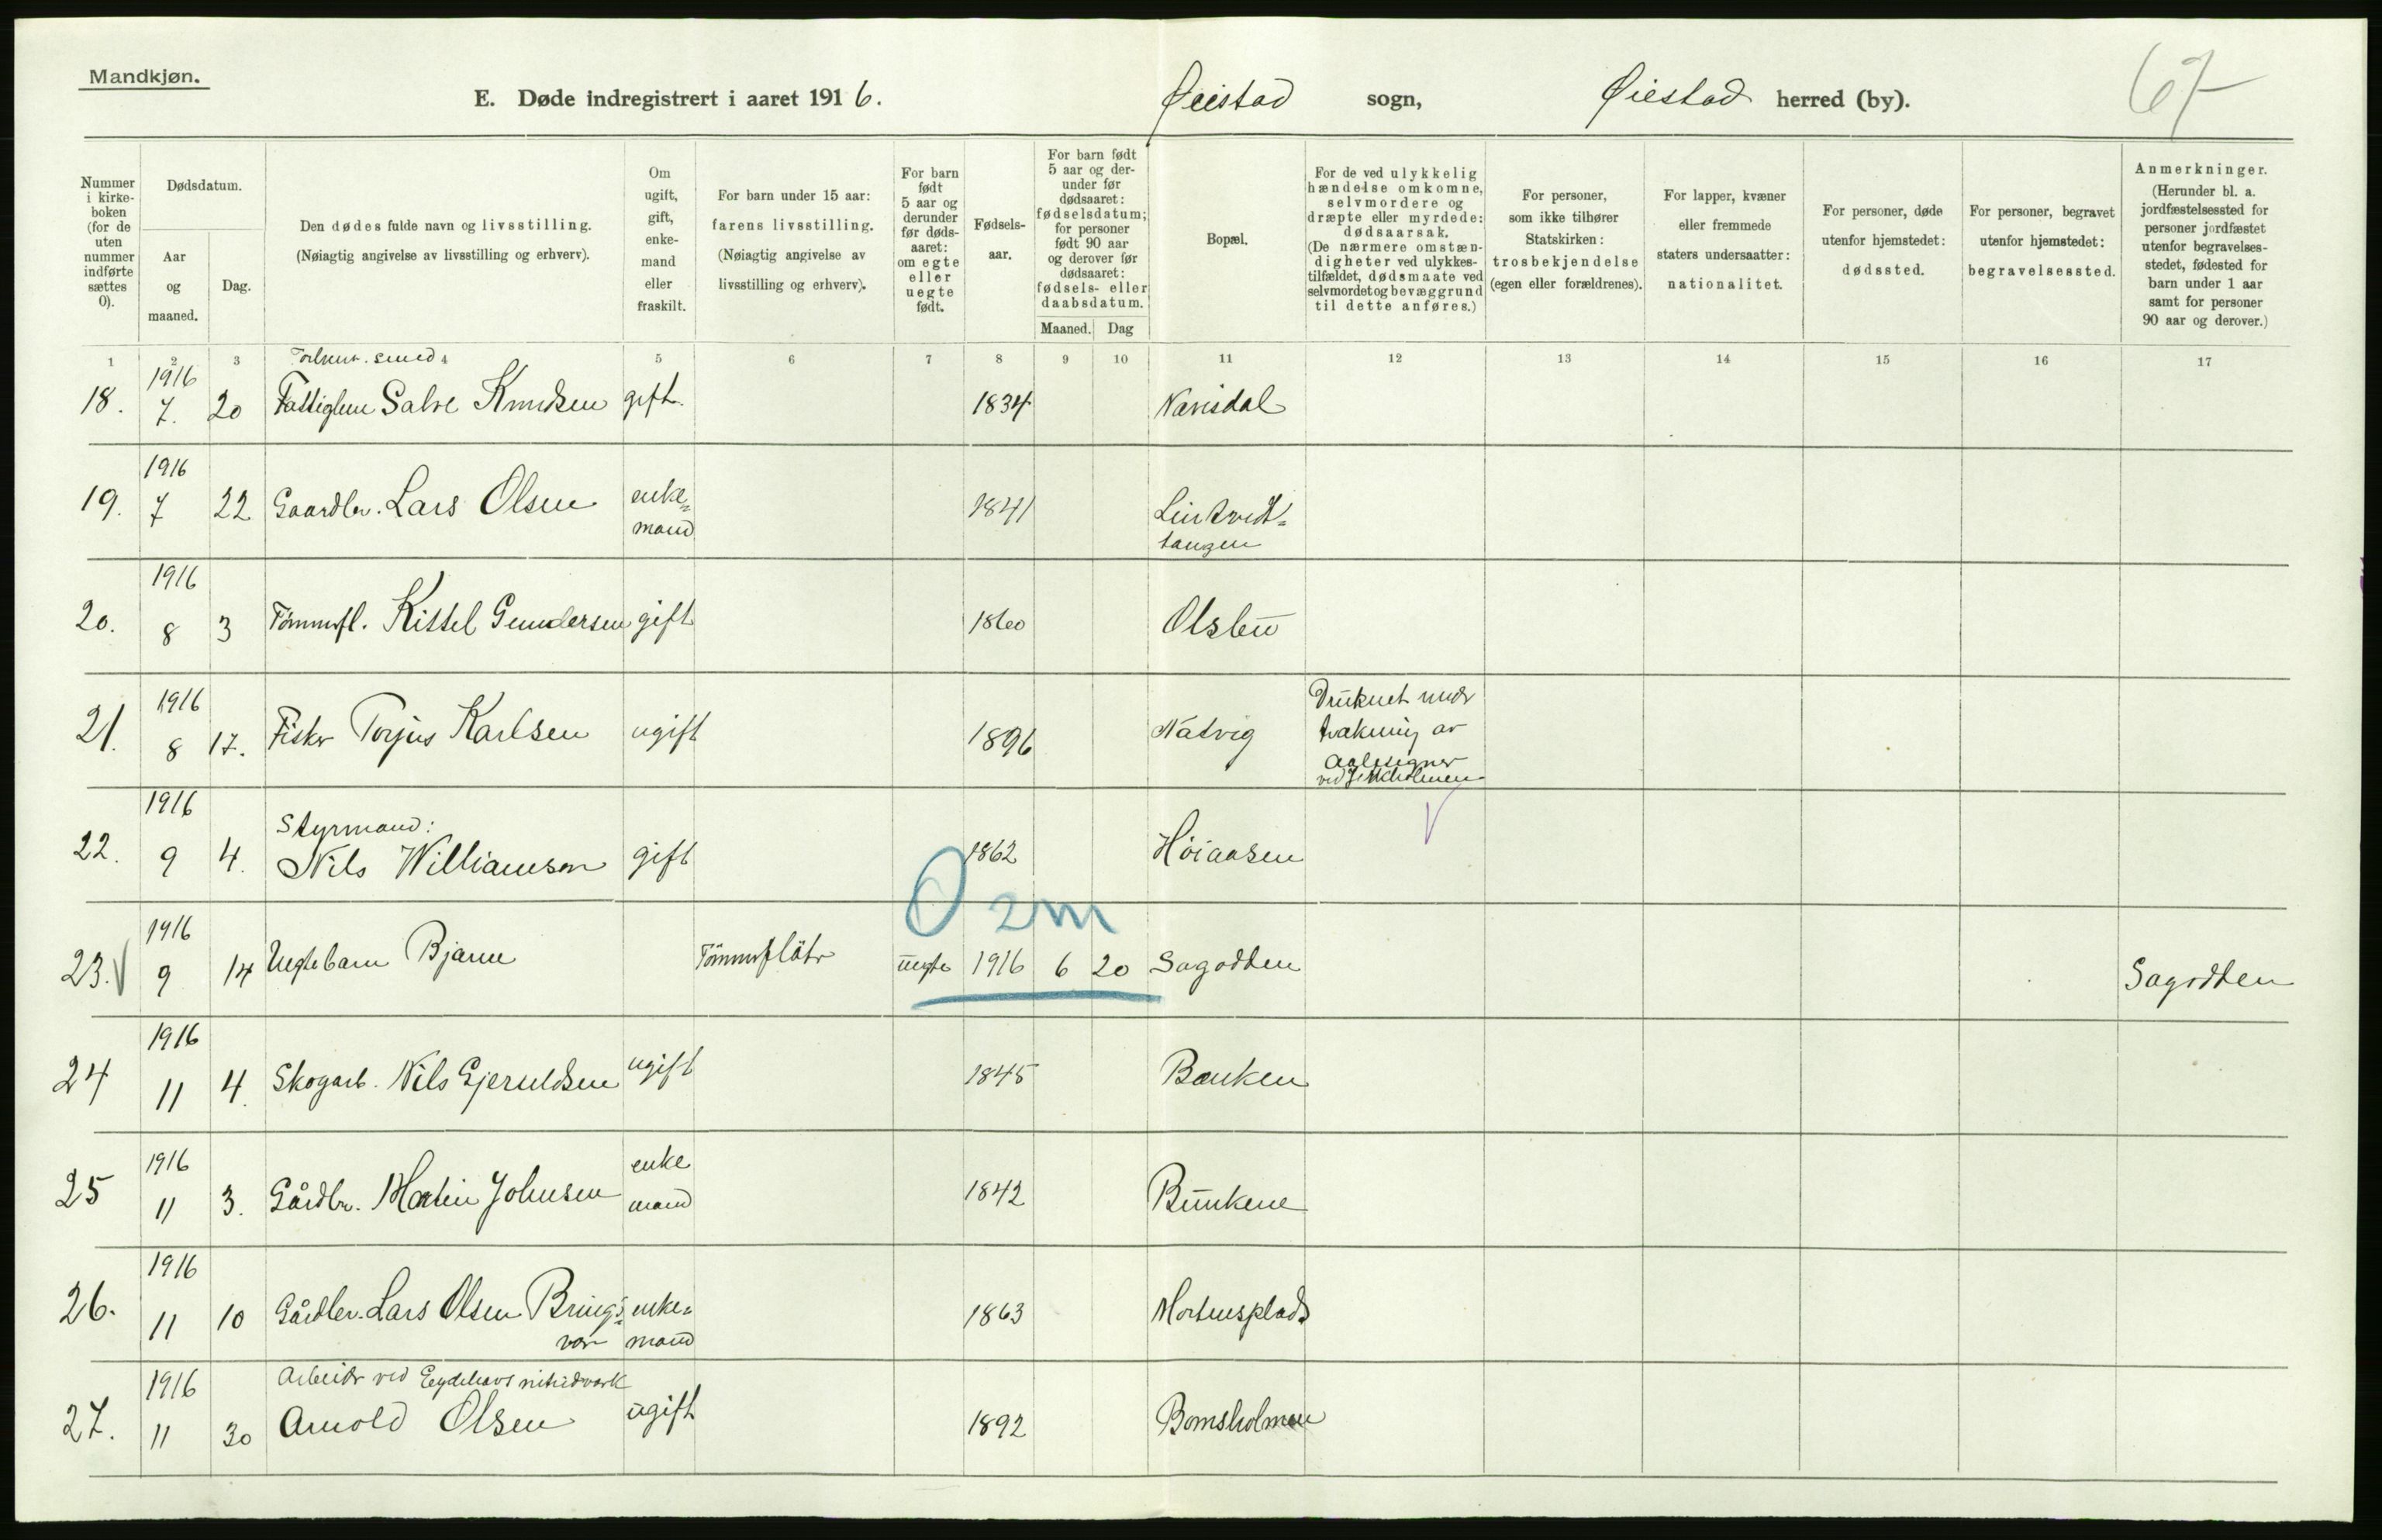 Mandkjøn.
E. Døde indregistrert i aaret 1916. Øiestad sogn, Øiestad herred (by). 67
Nummer i kirkeboken (for de uten nummer indførte sættes 0).
Dødsdatum.
Aar og maaned.
Dag.
Den dødes fulde navn og livsstilling.
(Nøiagtig angivelse av livsstilling og erhverv).
Om ugift, gift, enkemand eller fraskilt.
For barn under 15 aar: farens livsstilling.
(Nøiagtig angivelse av livsstilling og erhverv).
For barn født 5 aar og derunder før dødsaaret: om egte eller uegte født.
Fødselsaar.
For barn født 5 aar og derunder før dødsaaret: fødselsdatum; for personer født 90 aar og derover før dødsaaret: fødsels- eller daabsdatum.
Maaned. Dag
Bopæl.
For de ved ulykkelig hændelse omkomne, selvmordere og dræpte eller myrdede: dødsaarsak.
(De nærmere omstændigheter ved ulykkestilfældet, dødsmaate ved selvmordet og bevæggrund til dette anføres.)
For personer, som ikke tilhører Statskirken: trosbekjendelse (egen eller forældrenes).
For lapper, kvæner eller fremmede staters undersaatter: nationalitet.
For personer, døde utenfor hjemstedet: dødssted.
For personer, begravet utenfor hjemstedet: begravelsessted.
Anmerkninger.
(Herunder bl. a. jordfæstelsessted for personer jordfæstet utenfor begravelsesstedet, fødested for barn under 1 aar samt for personer 90 aar og derover.)
1 2 3 4 5 6 7 8 9 10 11 12 13 14 15 16 17
smed
1916
18. 7. 20 Salve Knudsen gift. 1834
1916
19. 7 22 Gaardbr. Lars Olsen enke= 1841
mand
tangen
1916
20. 8 3 Tømmerfl. Kittel Gundersen gift 1860 Olsbu
1916
21. 8 17. Fisker Torjus Karlsen ugift 1896 Natvig Druknet under
trakning av
ved
1916
Styrmand:
22. 9 4. Nils Williamsen gift 1862 Høiaasen
0 2m
1916
23. 9 14 Uegte barn Bjarne Tømmerfløter uegte 1916 6 20 Sagodden Sagodden
1916
24 11 4. Skogarb. Nils Gjeruldsen ugift 1845 Banken
1916
25 11 3. Gårdbr. Martin Johnsen enke 1842 Bunkene
mand
1916
26. 11 10 Gårdbr. Lars Olsen Brings= enke= 1863 Mortensplads
vor mand
1916
Arbeider ved Eydehavns nitridverk
27. 11 30 Arnold Olsen ugift 1892 Bomsholmen